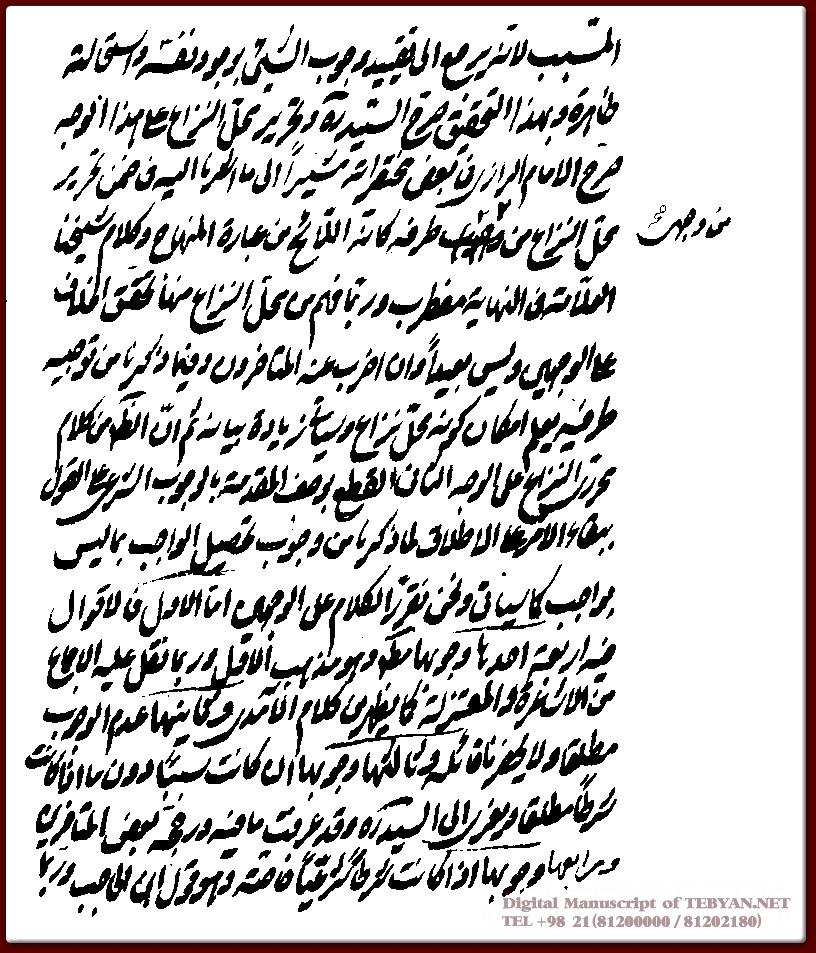 المسبب لانه يرجع الى تقييد وجوب الشيئ بوجود نفسه واستحالته
ظاهرة وبهذا التحقيق صرح السيد ره وتحرير محل النزاع على هذا الوجه
صرح الامام الرازى فى بعض مختصراته مشيراً الى ما اشرنا اليه فى ضمن تحرير
محل النزاع من طرفه كانه اللائح من عبارة المنهاج وكلام شيخنا
من وجهى
العلامة فى النهاية مضطرب وربما فهم من محل النزاع منها تحقق الخلاف
على الوجهين وليس بعيداً وان اضرب عنه المتاخرون وفيما ذكرنا من توجيه
طرفيه يعلم امكان كونه محل نزاع وسياتى زيادة بيانه ثم ان الظ من كلام
محررى النزاع على الوجه الثانى القطع بوصف المقدمة بالوجوب الشرعى على القول
ببقاء الامر على الاطلاق لما ذكرنا من وجوب تحصيل الواجب بما ليس
بواجب كما سياتى ونحن نقرر الكلام على الوجهين اما الاول فالاقوال
فيه اربعة احدها وجوبها مط وهو مذهب الاقل وربما نقل عليه الاجماع
من الاشاعرة والمعتزلة كما يظهر من كلام الآمدى وثانيها عدم الوجوب
مطلقا ولا يحضرنا قائله وثالثها وجوبها ان كانت سببا دون ما اذا كانت
شرطاً مطلقا ويعزى الى السيد ره وقد عرفت ما فيه ورجحه بعض المتاخرين
ورابعها وجوبها اذا كانت شرطاً شرعياً خاصة وهو قول ابن الحاجب وربما
Digital Manuscript of TEBYAN.NET
TEL +98 21(81200000 / 81202180)